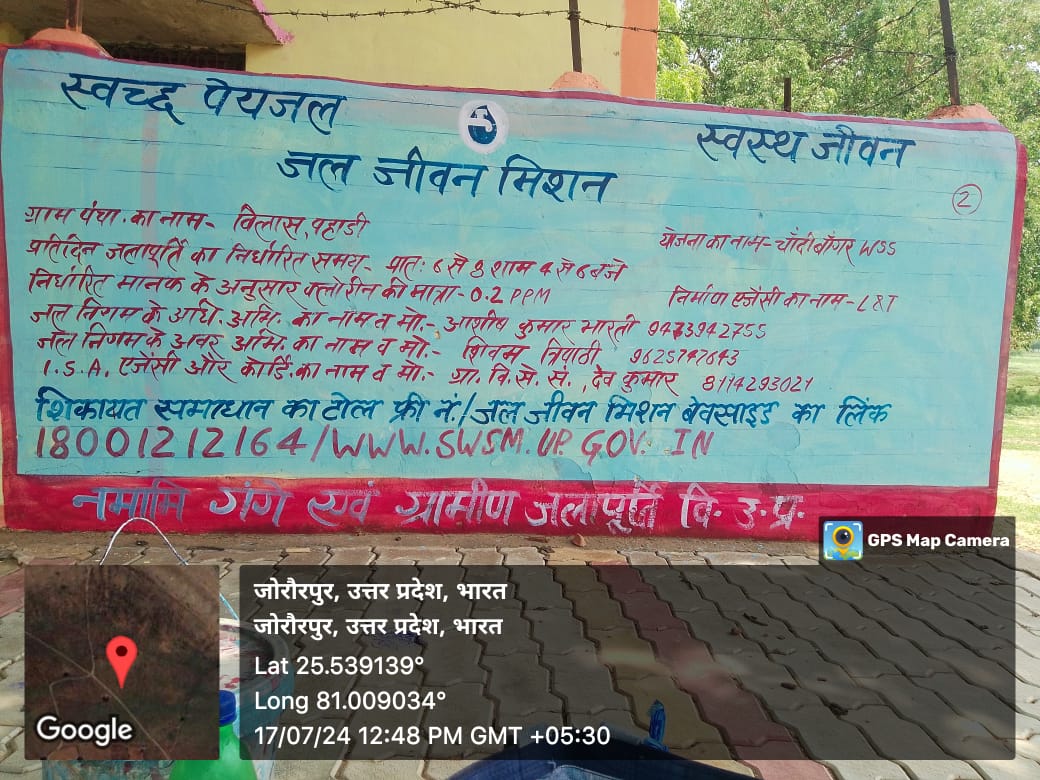 स्वच्छ पेयजल
स्वस्थ जीवन
जल जीवन मिशन
2
ग्राम पंचा. का नाम- विलास, पहाडी
योजना का नाम- चाँदी बाँगर WSS
प्रतिदिन जलापूर्ति का निर्धारित समय- प्रातः 6 से 8 शाम 4 से 6 बजे
निर्धारित मानक के अनुसार क्लोरीन की मात्रा- 0.2 PPM
निर्माण एजेंसी का नाम- L&T
जल निगम के अधि. अभि. का नाम व मो.- आशीष कुमार भारती 9473942755
जल निगम के अवर अभि. का नाम व मो.- शिवम त्रिपाठी 9625747643
I.S.A. एजेंसी और कोर्डि. का नाम व मो.- ग्रा. वि. से. सं., देव कुमार 8114293021
शिकायत समाधान का टोल फ्री नं./जल जीवन मिशन बेवसाइड का लिंक
18001212164/WWW.SWSM.UP.GOV.IN
नमामि गंगे एवं ग्रामीण जलापूर्ति वि. उ.प्र.
GPS Map Camera
जोरौरपुर, उत्तर प्रदेश, भारत
जोरौरपुर, उत्तर प्रदेश, भारत
Lat 25.539139°
Long 81.009034°
17/07/24 12:48 PM GMT +05:30
Google